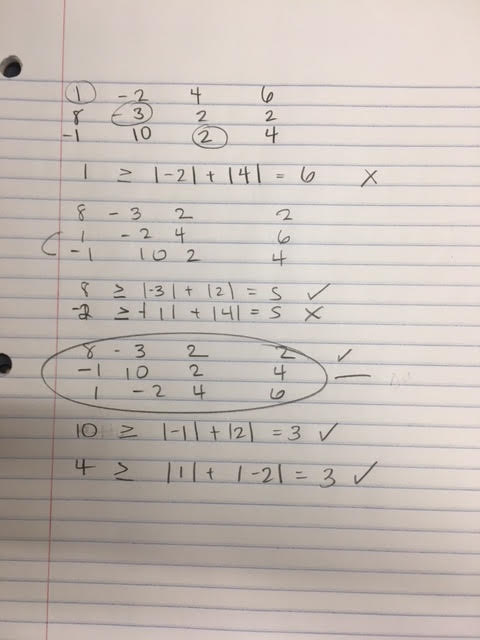 1 -2 4 6
8 -3 2 2
-1 10 2 4
1 ≥ |-2| + |4| = 6 X
8 -3 2 2
1 -2 4 6
-1 10 2 4
8 ≥ |-3| + |2| = 5 ✓
-2 ≥ |1| + |4| = 5 X
8 -3 2 2 ✓
-1 10 2 4 —
1 -2 4 6
10 ≥ |-1| + |2| = 3 ✓
4 ≥ |1| + |-2| = 3 ✓